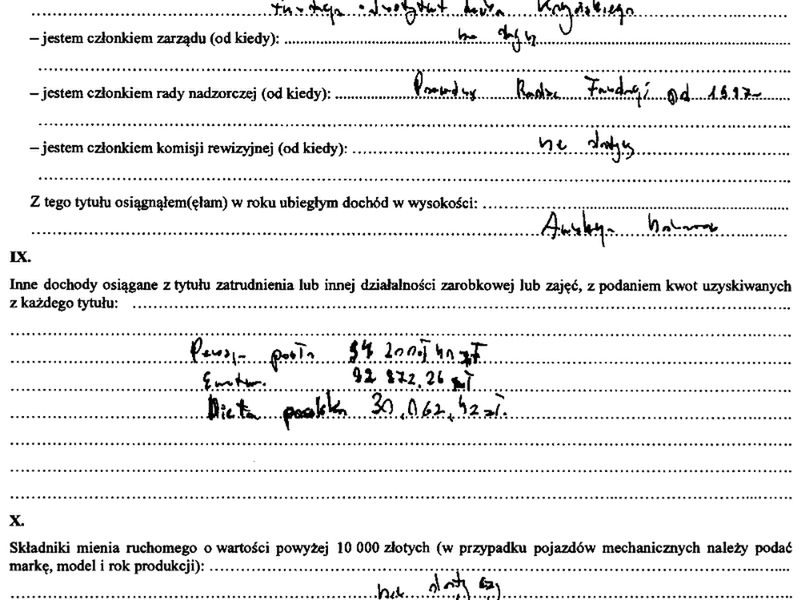 – jestem członkiem zarządu (od kiedy): nie dotyczy
– jestem członkiem rady nadzorczej (od kiedy): Rada Fundacji od 1997
– jestem członkiem komisji rewizyjnej (od kiedy): nie dotyczy
Z tego tytułu osiągnąłem(ęłam) w roku ubiegłym dochód w wysokości:
IX.
Inne dochody osiągane z tytułu zatrudnienia lub innej działalności zarobkowej lub zajęć, z podaniem kwot uzyskiwanych
z każdego tytułu:
zł
92 872,26 zł
Dieta poselska 30.062,42 zł.
X.
Składniki mienia ruchomego o wartości powyżej 10 000 złotych (w przypadku pojazdów mechanicznych należy podać
markę, model i rok produkcji):
nie dotyczy